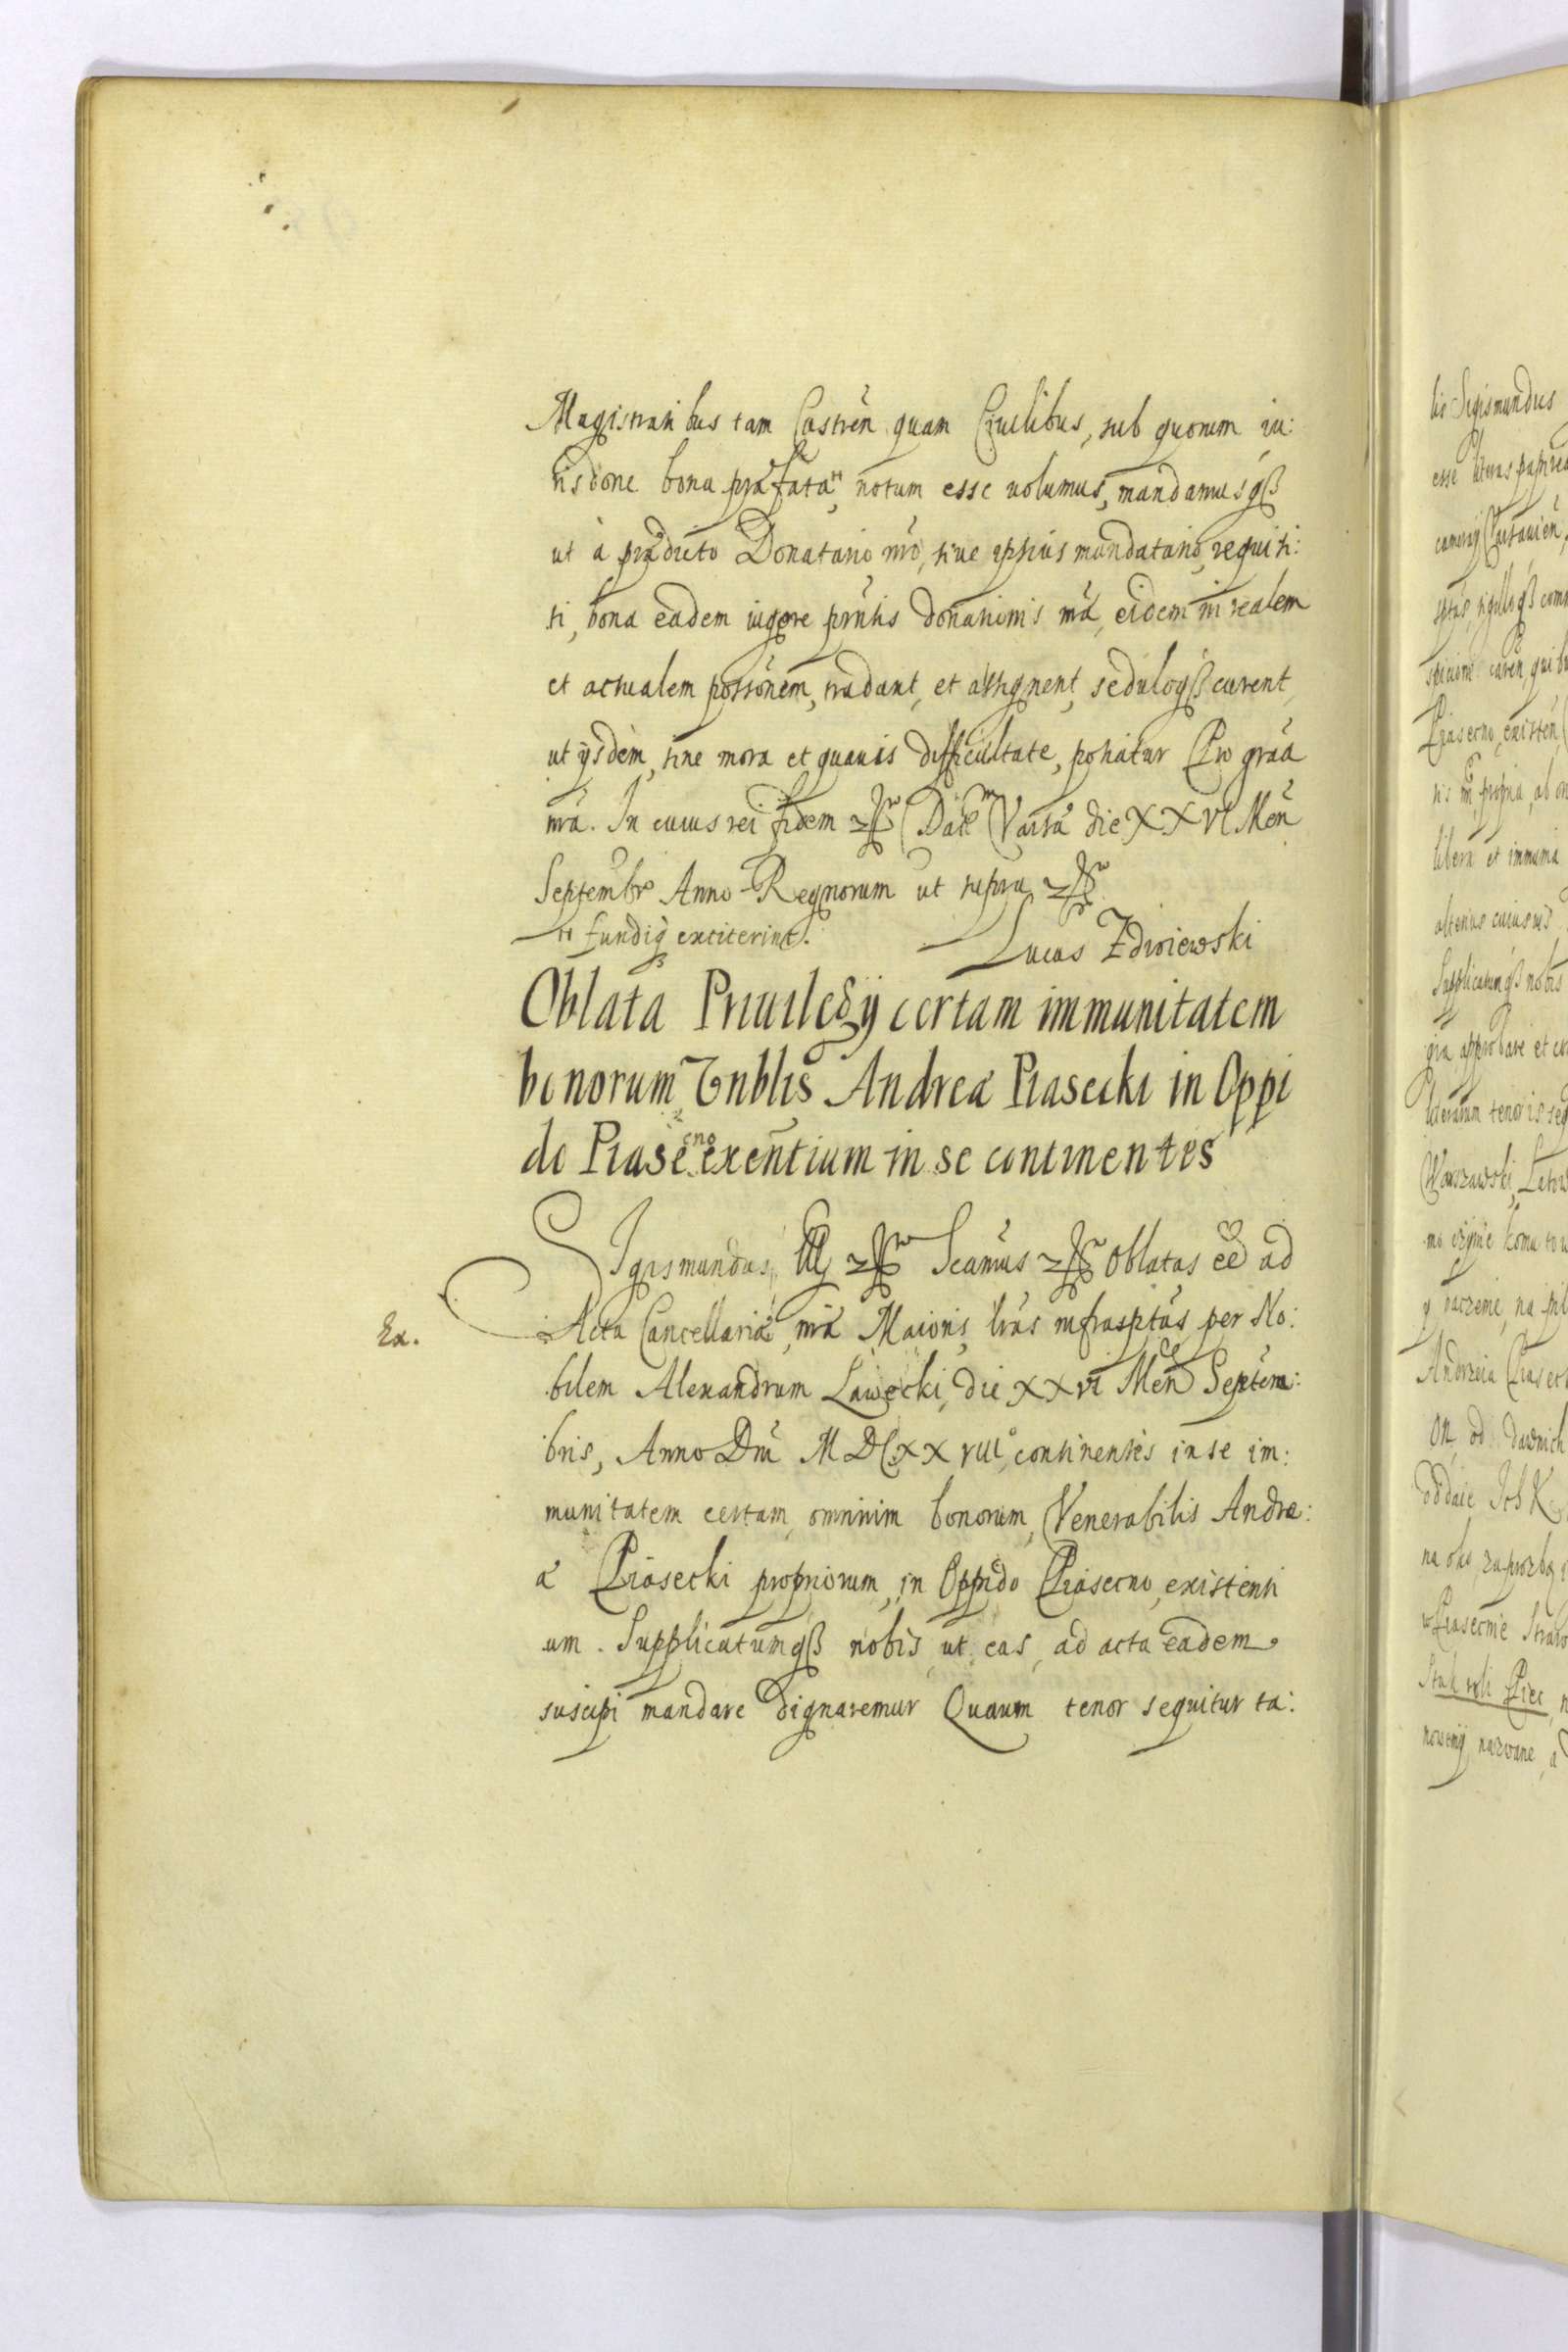 Magistratibus tam Castren̄ quam Ciuilibus, sub quorum iu:
risdone bona præfata ⁺⁺ notum esse uolumus, mandamusqȝ
ut à prædicto Donatario nr̄o, siue ipsius mandatario, requisi:
ti, bona eadem uigore pr̄ntis donationis nr̄æ, eidem in realem
et actualem possōnem, tradant, et assignent, seduloqȝ curent,
ut ijsdem, sine mora et quauis difficultate, potiatur Pro grā̄a
nr̄a. In cuius rei fidem Dat Vars̄æ die XXVI Men̄
Septembr Anno Regnorum ut supra
⁺⁺ fundiq̨ extiterint. Lucas Zdroiewski
Oblata Priuilegij certam immunitatem
bonorum Vn̄blis Andreæ Piasecki in Oppi
do Piaseecno exentium in se continentes
Sigismundus III Scām̄us Oblatas eē ad
Ex. Acta Cancellariæ nr̄æ Maioris lr̄as infrasptas per No:
bilem Alexandrum Ławecki, die XXVI Men̄ Septem:
bris, Anno Dn̄i MDCXXVIII continentes in se im:
munitatem certam omnium bonorum Venerabilis Andre:
æ Piasecki propriorum, in Oppido Piaseczno, existenti
um. Supplicatumqȝ nobis, ut eas, ad acta eadem
suscipi mandare dignaremur Quarum tenor sequitur ta:
lis Sigismundus
esse literas papirea
Piasecno, existen̄
libera et immunia
alterius cuiusuis
Supplicatumqȝ nobis
gia approbare et
literarum tenoris seq
Warszawski
Andrzeia Piasec
On od dawnich
w Piasecnie
nazwane, a